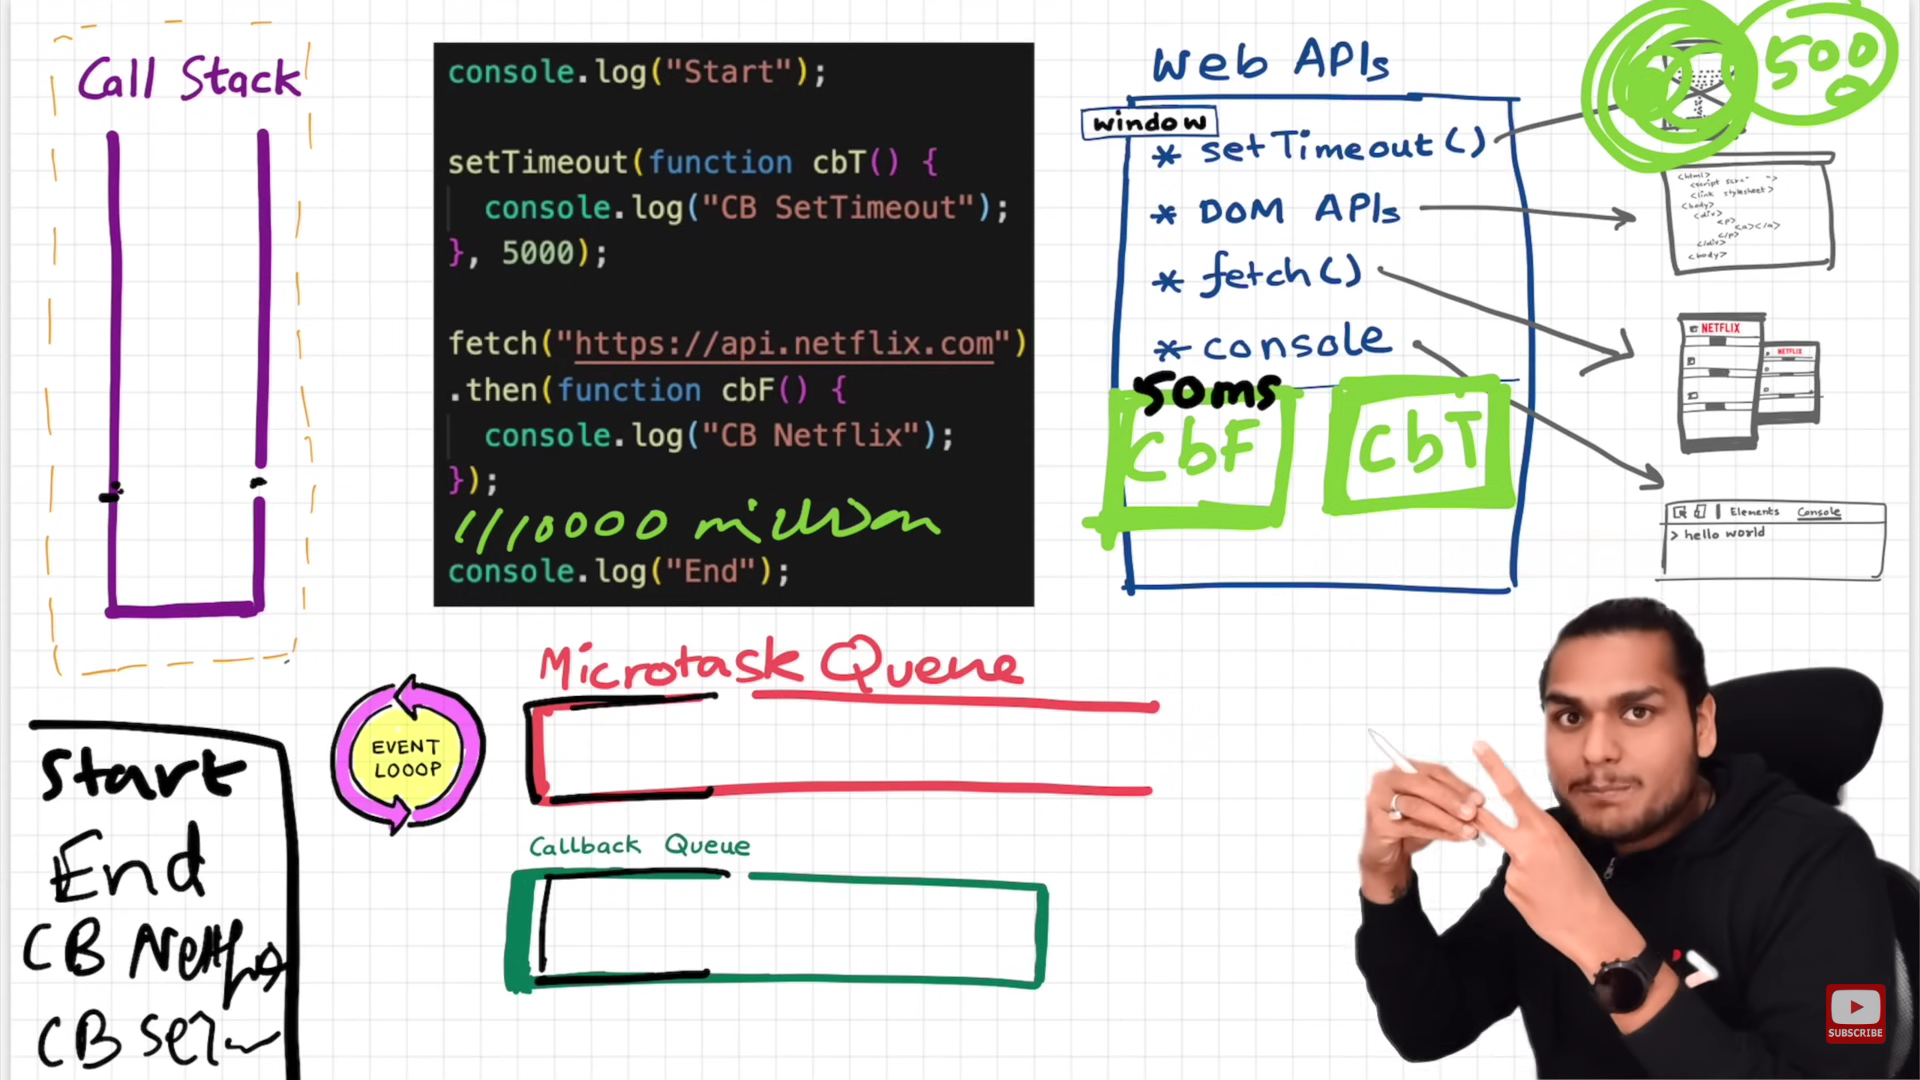 Call Stack
console.log("Start");
setTimeout(function cbT() {
console.log("CB SetTimeout");
}, 5000);
fetch("https://api.netflix.com")
.then(function cbF() {
console.log("CB Netflix");
});
console.log("End");
Web APIs
window
* setTimeout()
* DOM APIs
* fetch()
* console
50ms
CbF
CbT
500
<html>
<link stylesheet>
<body>
<div>
<p>
<a></a>
</p>
</div>
<body>
NETFLIX
NETFLIX
Elements Console
> hello world
Microtask Queue
EVENT
LOOOP
Callback Queue
Start
End
CB
CB
SUBSCRIBE